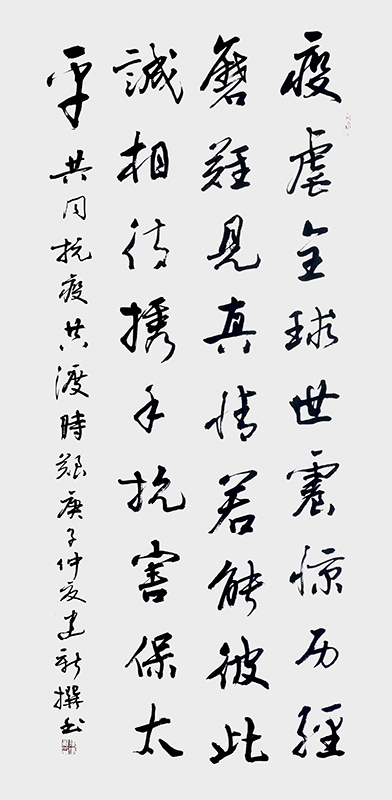 疫虐全球世震惊历經
磨難見真情若能彼此
誠相待携手抗害保太
平 共同抗疫共渡時艱庚子仲夏建新撰书